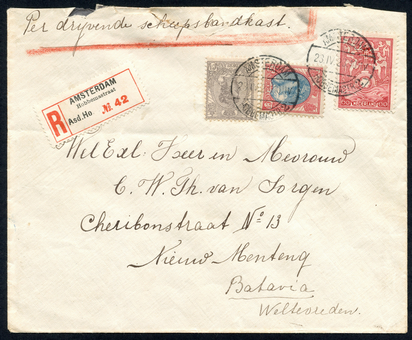 Per drijvende scheepsbandkast.
AMSTERDAM
Hobbemastraat
R
Asd. Ho № 42
Wel Exl. Heer en Mevrouw
C. W. Th. van Sorgen
Cheribonstraat No 13
Nieuw Menteng
Batavia
Weltevreden.